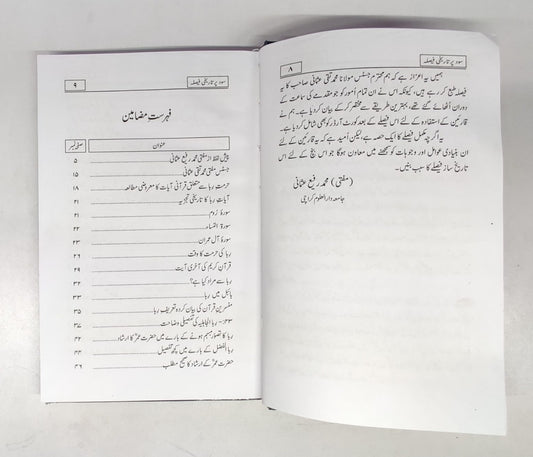 ۸
سود پر تاریخی فیصلہ
ہمیں یہ اعزاز ہے کہ ہم محترم جسٹس مولانا محمد تقی عثمانی صاحب کا یہ
فیصلہ طبع کر رہے ہیں، کیونکہ اس نے ان تمام اُمور کو جو مقدمے کی سماعت کے
دوران اُٹھائے گئے تھے، بہترین طریقے سے مختصر کر کے بیان کر دیا ہے۔ ہم نے
قارئین کے استفادہ کے لئے اس فیصلے کے بعد کورٹ آرڈر کو بھی شامل کر دیا ہے۔
یہ اگرچہ مکمل فیصلے کا ایک حصہ ہے، لیکن اُمید ہے کہ یہ قارئین کے لئے
ان بنیادی عوامل اور وجوہات کو سمجھنے میں معاون ہوگا جو اس بنچ کے لئے اس
تاریخ ساز فیصلے کا سبب بنیں۔
(مفتی) محمد رفیع عثمانی
جامعہ دارالعلوم کراچی
سود پر تاریخی فیصلہ
۹
فہرست مضامین
عنوان
صفحہ نمبر
پیش لفظ از مفتی محمد رفیع عثمانی ۵
جسٹس مفتی محمد تقی عثمانی ۱۵
حرمت ربا سے متعلق قرآنی آیات کا معروضی مطالعہ ۱۸
آیات ربا کا تاریخی تجزیہ ۲۱
سورۂ روم ۲۱
سورۃ النساء ۲۲
سورۂ آل عمران ۲۳
ربا کی حرمت کا وقت ۲۶
قرآن کریم کی آخری آیت ۲۹
ربا سے مراد کیا ہے؟ ۳۲
بائبل میں ربا ۳۳
مفسرین قرآن کی بیان کردہ تعریف ربا ۳۵
۳۳:- ربا الجاہلیہ کی تفصیلی وضاحت ۳۷
ربا کا تصور مبہم ہونے کے بارے میں حضرت عمرؓ کا ارشاد ۴۲
ربا الفضل کے بارے میں کچھ تفصیل ۴۴
حضرت عمرؓ کے ارشاد کا صحیح مطلب ۴۶